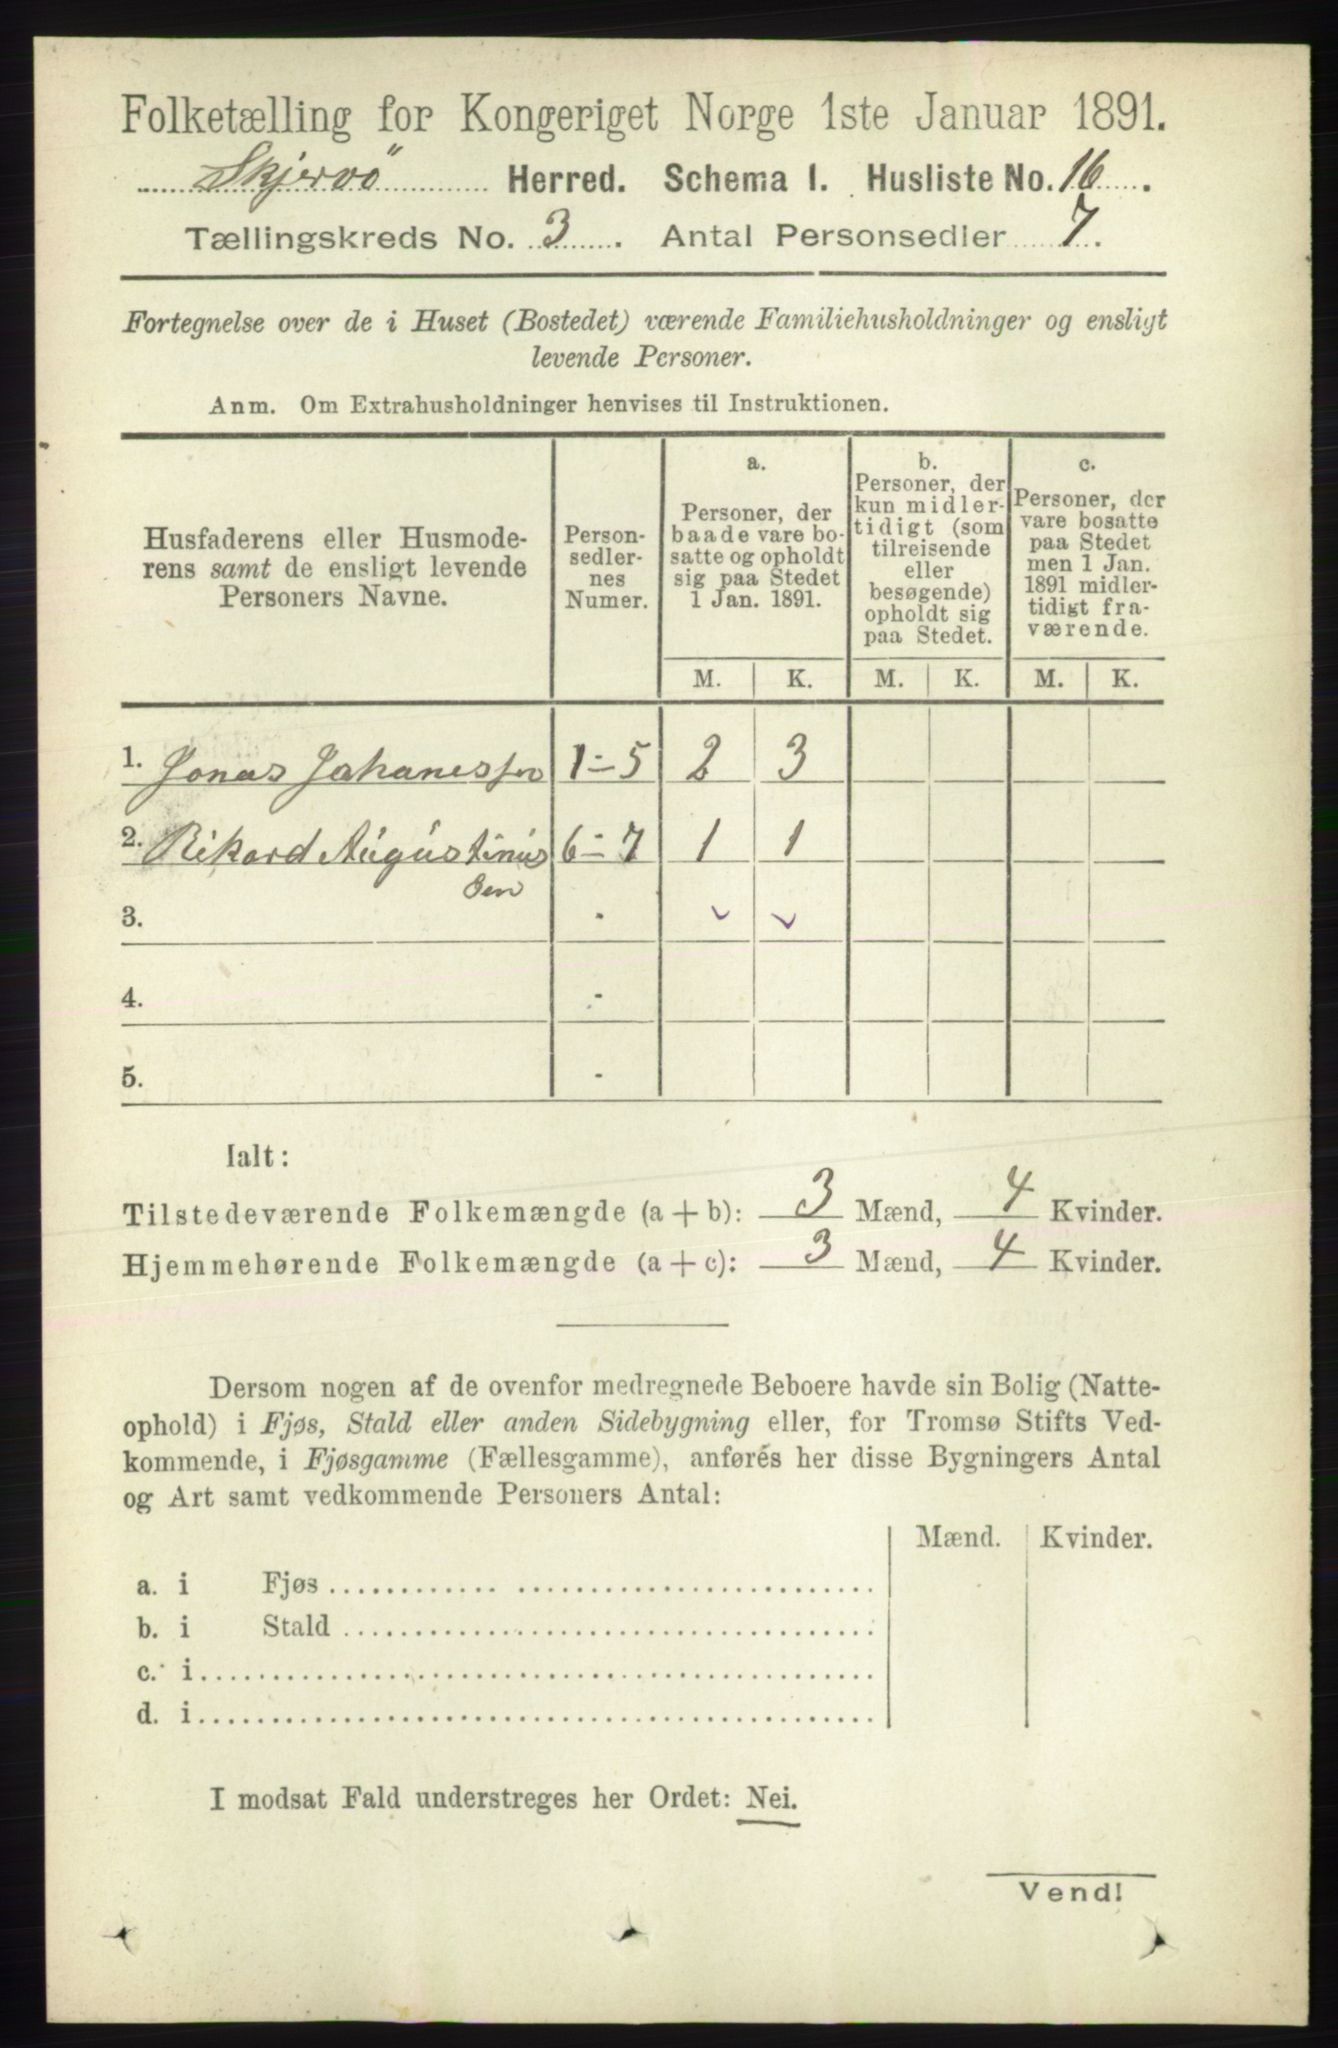 Folketælling for Kongeriget Norge 1ste Januar 1891.
Skjervö Herred. Schema I. Husliste No. 16.
Tællingskreds No. 3. Antal Personsedler 7.
Fortegnelse over de i Huset (Bostedet) værende Familiehusholdninger og ensligt
levende Personer.
Anm. Om Extrahusholdninger henvises til Instruktionen.
Husfaderens eller Husmode-
rens samt de ensligt levende
Personers Navne.
Person-
sedler-
nes
Numer.
a.
Personer, der
baade vare bo-
satte og opholdt
sig paa Stedet
1 Jan. 1891.
b.
Personer, der
kun midler-
tidigt (som
tilreisende
eller
besøgende)
opholdt sig
paa Stedet.
c.
Personer, der
vare bosatte
paa Stedet
men 1 Jan.
1891 midler-
tidigt fra-
værende.
M. K. M. K. M. K.
1. Jonas Johanessen 1-5 2 3
2. Rikard Augustinus 6-7 1 1
sen
3. - ✓ ✓
4. -
5. -
Ialt:
Tilstedeværende Folkemængde (a + b): 3 Mænd, 4 Kvinder.
Hjemmehørende Folkemængde (a + c): 3 Mænd, 4 Kvinder.
Dersom nogen af de ovenfor medregnede Beboere havde sin Bolig (Natte-
ophold) i Fjøs, Stald eller anden Sidebygning eller, for Tromsø Stifts Ved-
kommende, i Fjøsgamme (Fællesgamme), anføres her disse Bygningers Antal
og Art samt vedkommende Personers Antal:
Mænd. Kvinder.
a. i Fjøs
b. i Stald
c. i
d. i
I modsat Fald understreges her Ordet: Nei.
Vend!